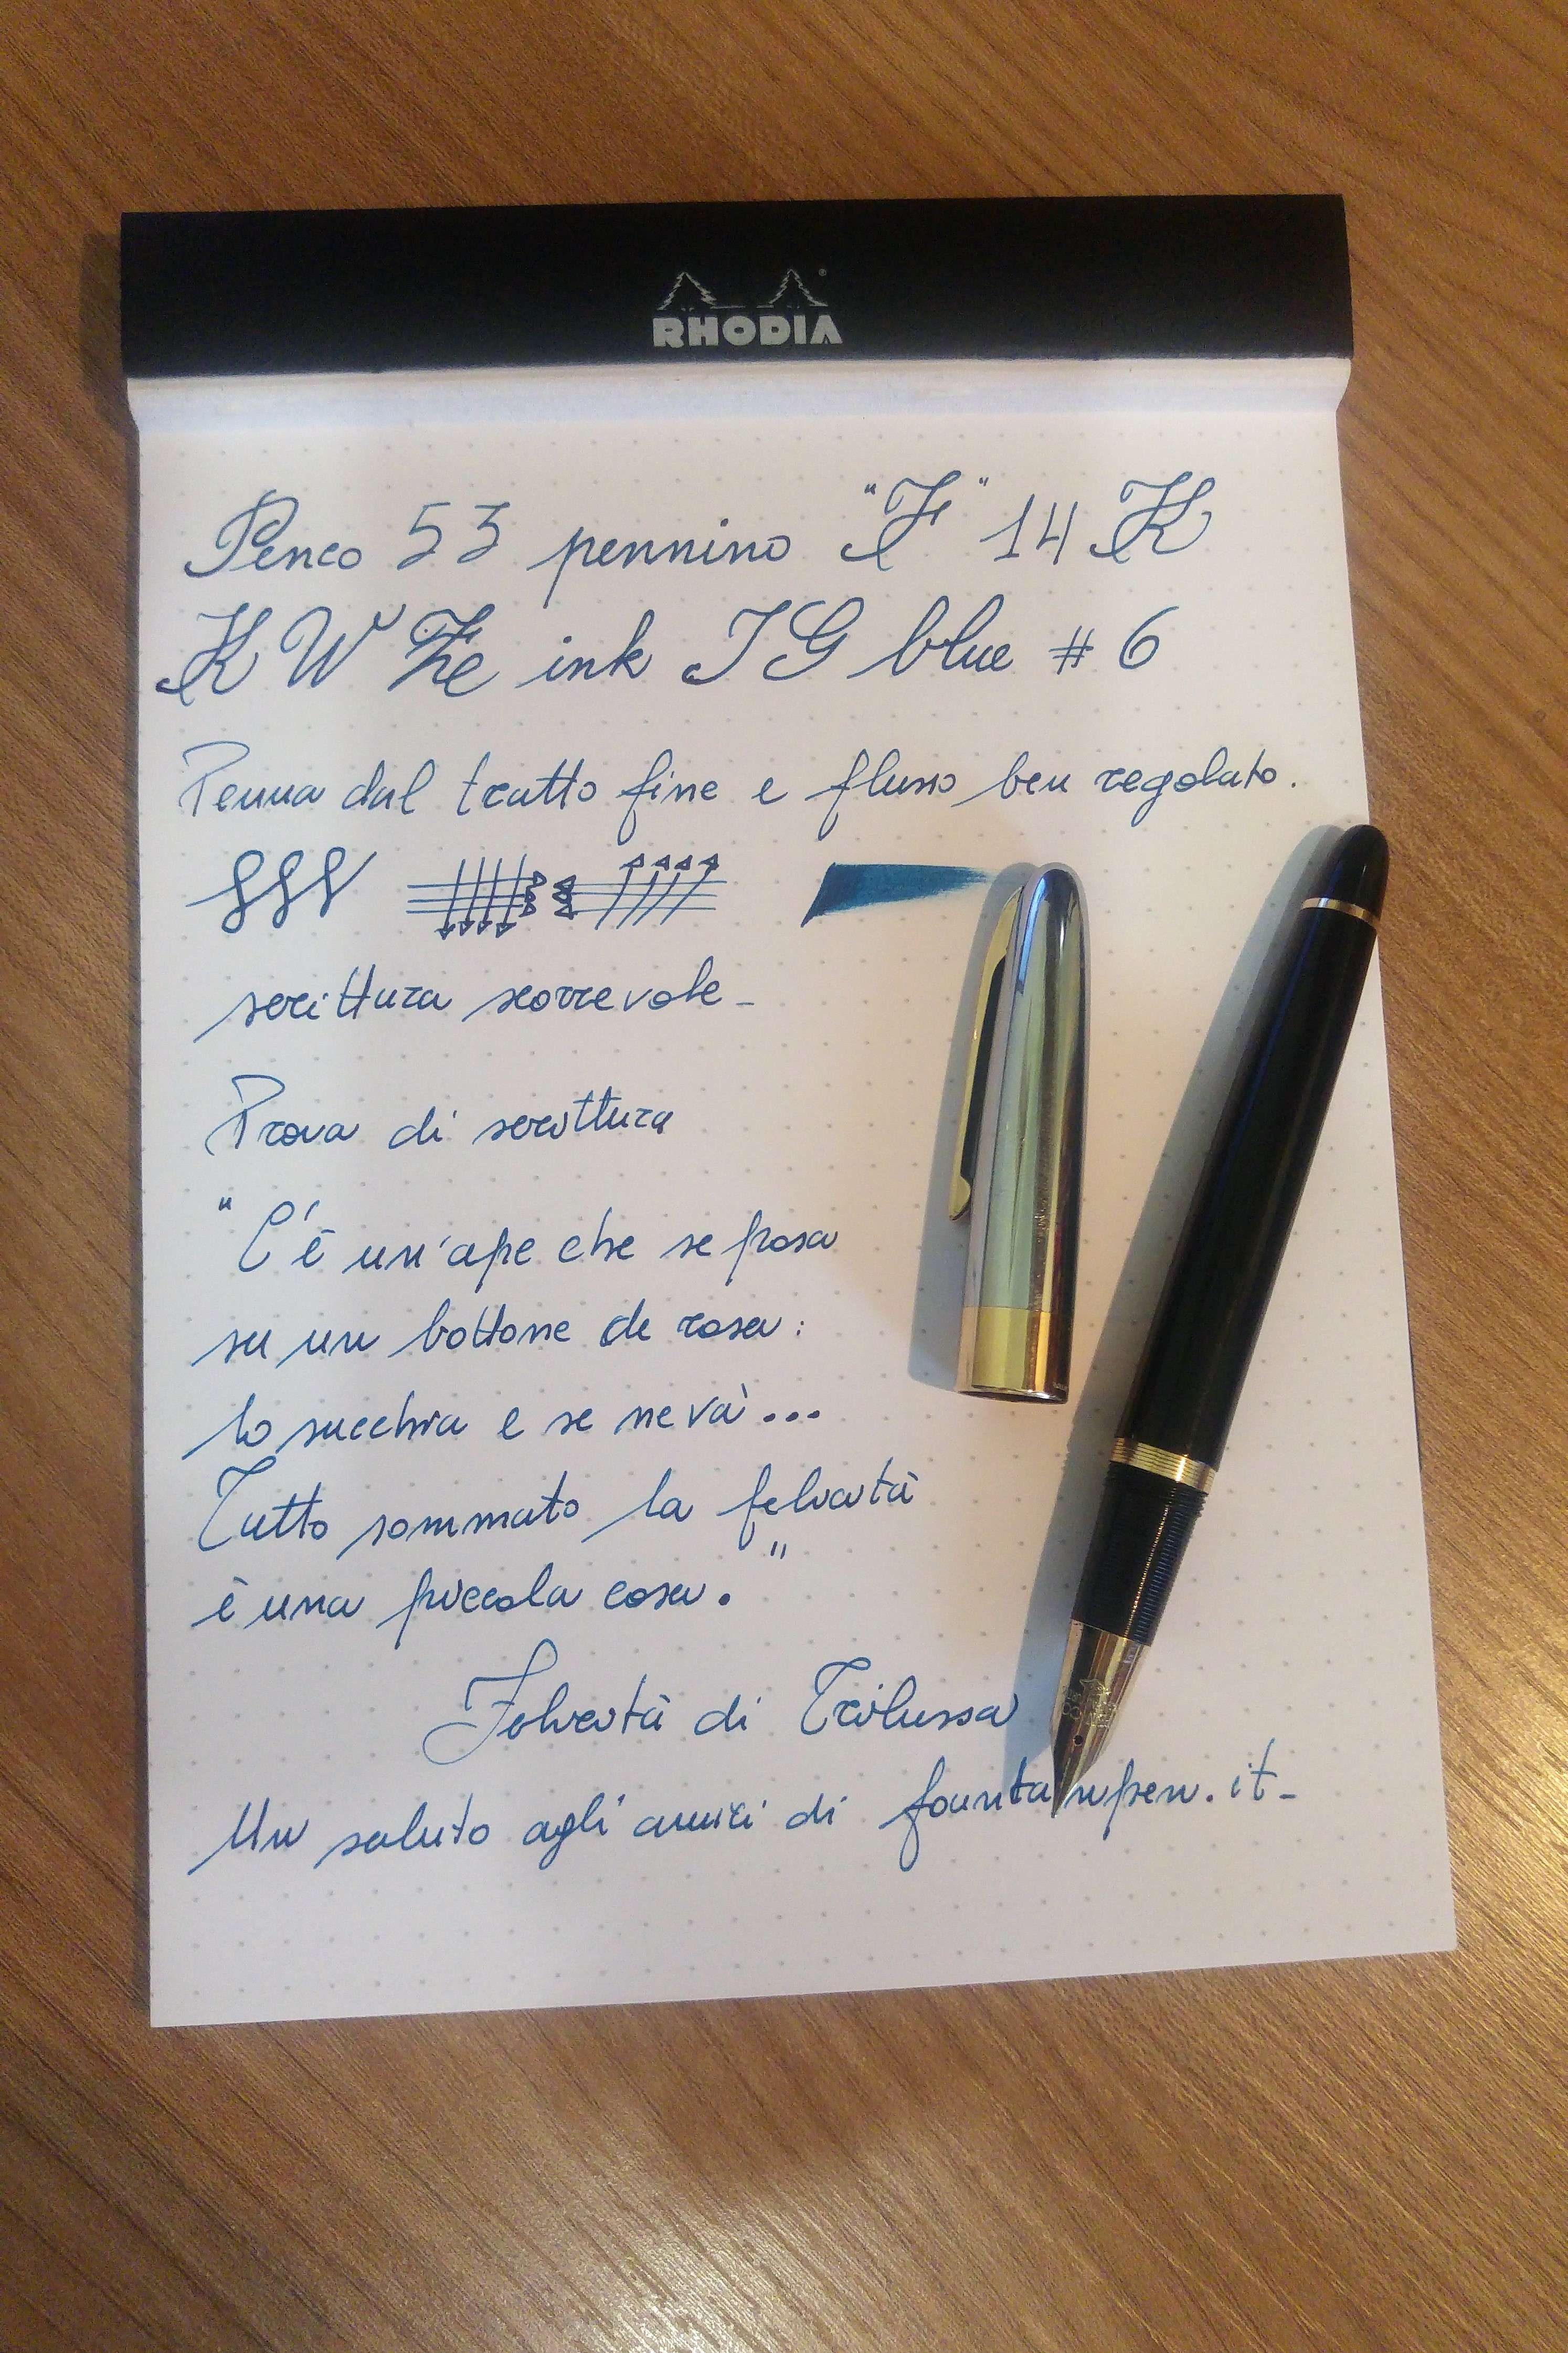 RHODIA
Penco 53 pennino "F" 14 K
KWZe ink IG blue #6
Penna dal tratto fine e flusso ben regolato.
scrittura scorrevole_
Prova di scrittura
"C'è un'ape che se posa
su un bottone de rosa:
lo succhia e se ne và...
Tutto sommato la felicità
è una piccola cosa."
Felicità di Trilussa
Un saluto agli amici di fountainpen.it_